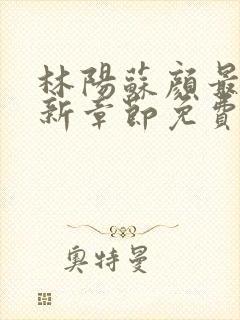 林陽蘇顔最
新章節免費
奧特曼